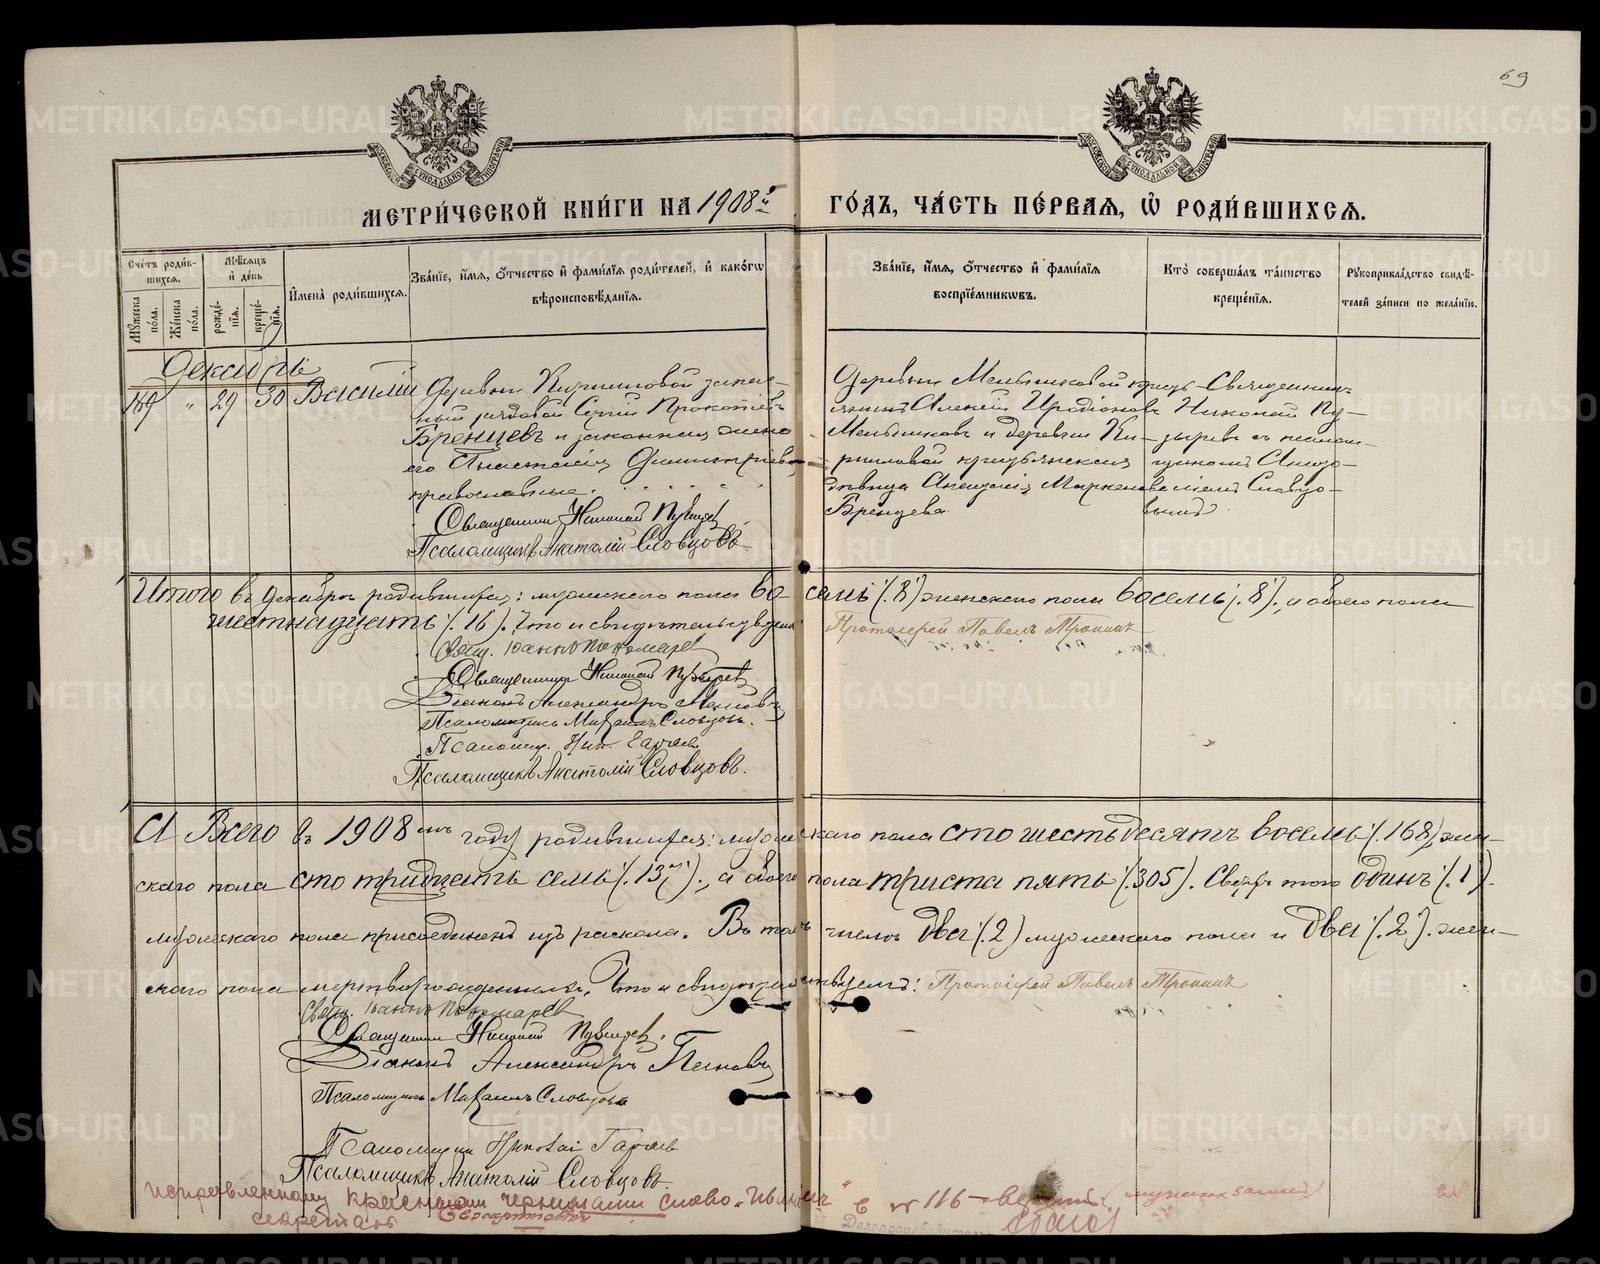 69
МЕТРИ́ЧЕСКОЙ КНИ́ГИ НА 1908й ГО́ДЪ, ЧА́СТЬ ПЕ́РВАЯ, Ѡ РОДИ́ВШИХСЯ.
Сче́тъ роди́в-
шихся.
Му́жеска по́ла.
Же́нска по́ла.
Мѣ́сяцъ
и҆ де́нь
рожде́-
нїя.
креще́-
нїя.
И҆мена̀ роди́вшихся.
Зва́нїе, и҆́мя, ѻ҆́тчество и҆ фами́лїя роди́телей, и҆ како́гѡ
вѣроисповѣ́данїя.
Зва́нїе, и҆́мя, ѻ҆́тчество и҆ фами́лїя
воспрїе́мникѡвъ.
Кто̀ соверша́лъ та́инство
креще́нїя.
Рꙋкоприкла́дство свидѣ́-
телей за́писи по жела́нїю.
Декабрь
169 " 29 30 Василiй
Деревни Кирпиловой запас-
ный рядовой Сергiй Прокопiевъ
Бренцевъ и законная жена
его Анастасiя Димитрiева
православные.
Священникъ Николай Пузыревъ
Псаломщикъ Анатолiй Словцовъ
Деревни Меньшиковой крест-
янинъ Алексiй Иродiоновъ
Меньшиковъ и деревни Ки-
рпиловой крестьянская
дѣвица Анисiя Маркелова
Бренцева
Священник
Николай Пу-
зыревъ съ псалом-
щикомъ Анато-
лiемъ Словцо-
вымъ.
Итого въ декабрѣ родившихся: мужескаго пола восемь (8), женскаго пола восемь (8), и обоего пола
шестнадцать (16). Что и свидѣтельствуемъ: Протоiерей Павелъ Тронинъ
Свящ. Iоаннъ Пономаревъ
Священникъ Николай Пузыревъ.
Дiаконъ Александръ
Псаломщикъ Михаилъ Словцовъ.
Псаломщ. Ник.
Псаломщикъ Анатолiй Словцовъ.
А Всего въ 1908 мъ году родившихся: мужескаго пола сто шестьдесятъ восемь (168), жен-
скаго пола сто тридцать семь (137); а обоего пола триста пять (305). Сверхъ того одинъ (1)
мужескаго пола присоединенъ изъ раскола. Въ томъ числѣ два (2) мужескаго пола и два (2) жен-
скаго пола мертворожденныхъ. Что и свидѣтельствуемъ: Протоiерей Павелъ Тронинъ
Свящ. Iоаннъ Пономаревъ
Священникъ Николай Пузыревъ.
Дiаконъ Александръ
Псаломщикъ Михаилъ Словцовъ
Псаломщикъ Николай
Псаломщикъ Анатолiй Словцовъ.
исправленному красными чернилами слово „Иванъ" в № 116 – (мужская запись)
секретарь
Делопроизводитель
METRIKI.GASO-URAL.RU